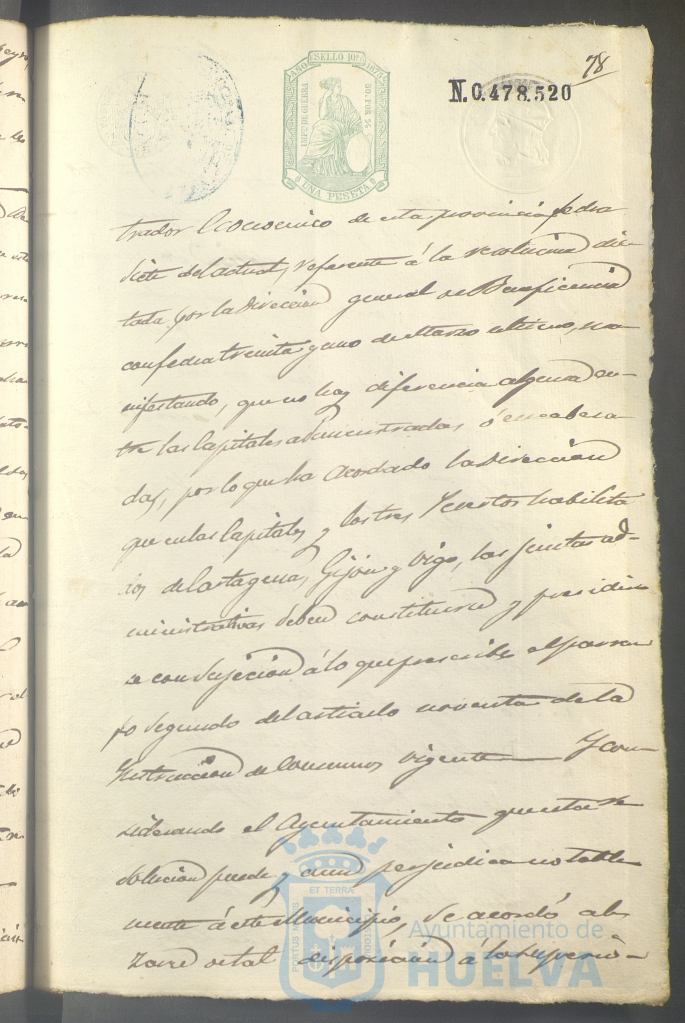 78
N.0.478.520
AÑO SELLO 10º 1875
IMPTO DE GUERRA
50 POR %
UNA PESETA
trador Economico de esta provincia fecha
siete del actual, referente á la resolucion dic-
tada por la Direccion general de Beneficencia
con fecha treinta y uno de Marzo ultimo, ma-
nifestando, que no hay diferencia alguna en-
tre las Capitales administradas ó encabeza-
das, por lo que ha acordado la Direccion
que en las Capitales y los tres Puertos habilita-
dos de Cartagena, Gijon y Vigo, las juntas ad-
ministrativas deben constituirse y presidir-
se con sujecion á lo que prescribe el parra-
fo segundo del articulo noventa de la
Instruccion de Consumos vigente. Y con-
siderando el Ayuntamiento que esta re-
solucion puede y aun perjudica notable-
mente á este Municipio, se acordó al-
zarse de tal disposicion á la Superio-
ET TERRÆ
PORTUS MARIS
CUSTODIA
Ayuntamiento de
HUELVA